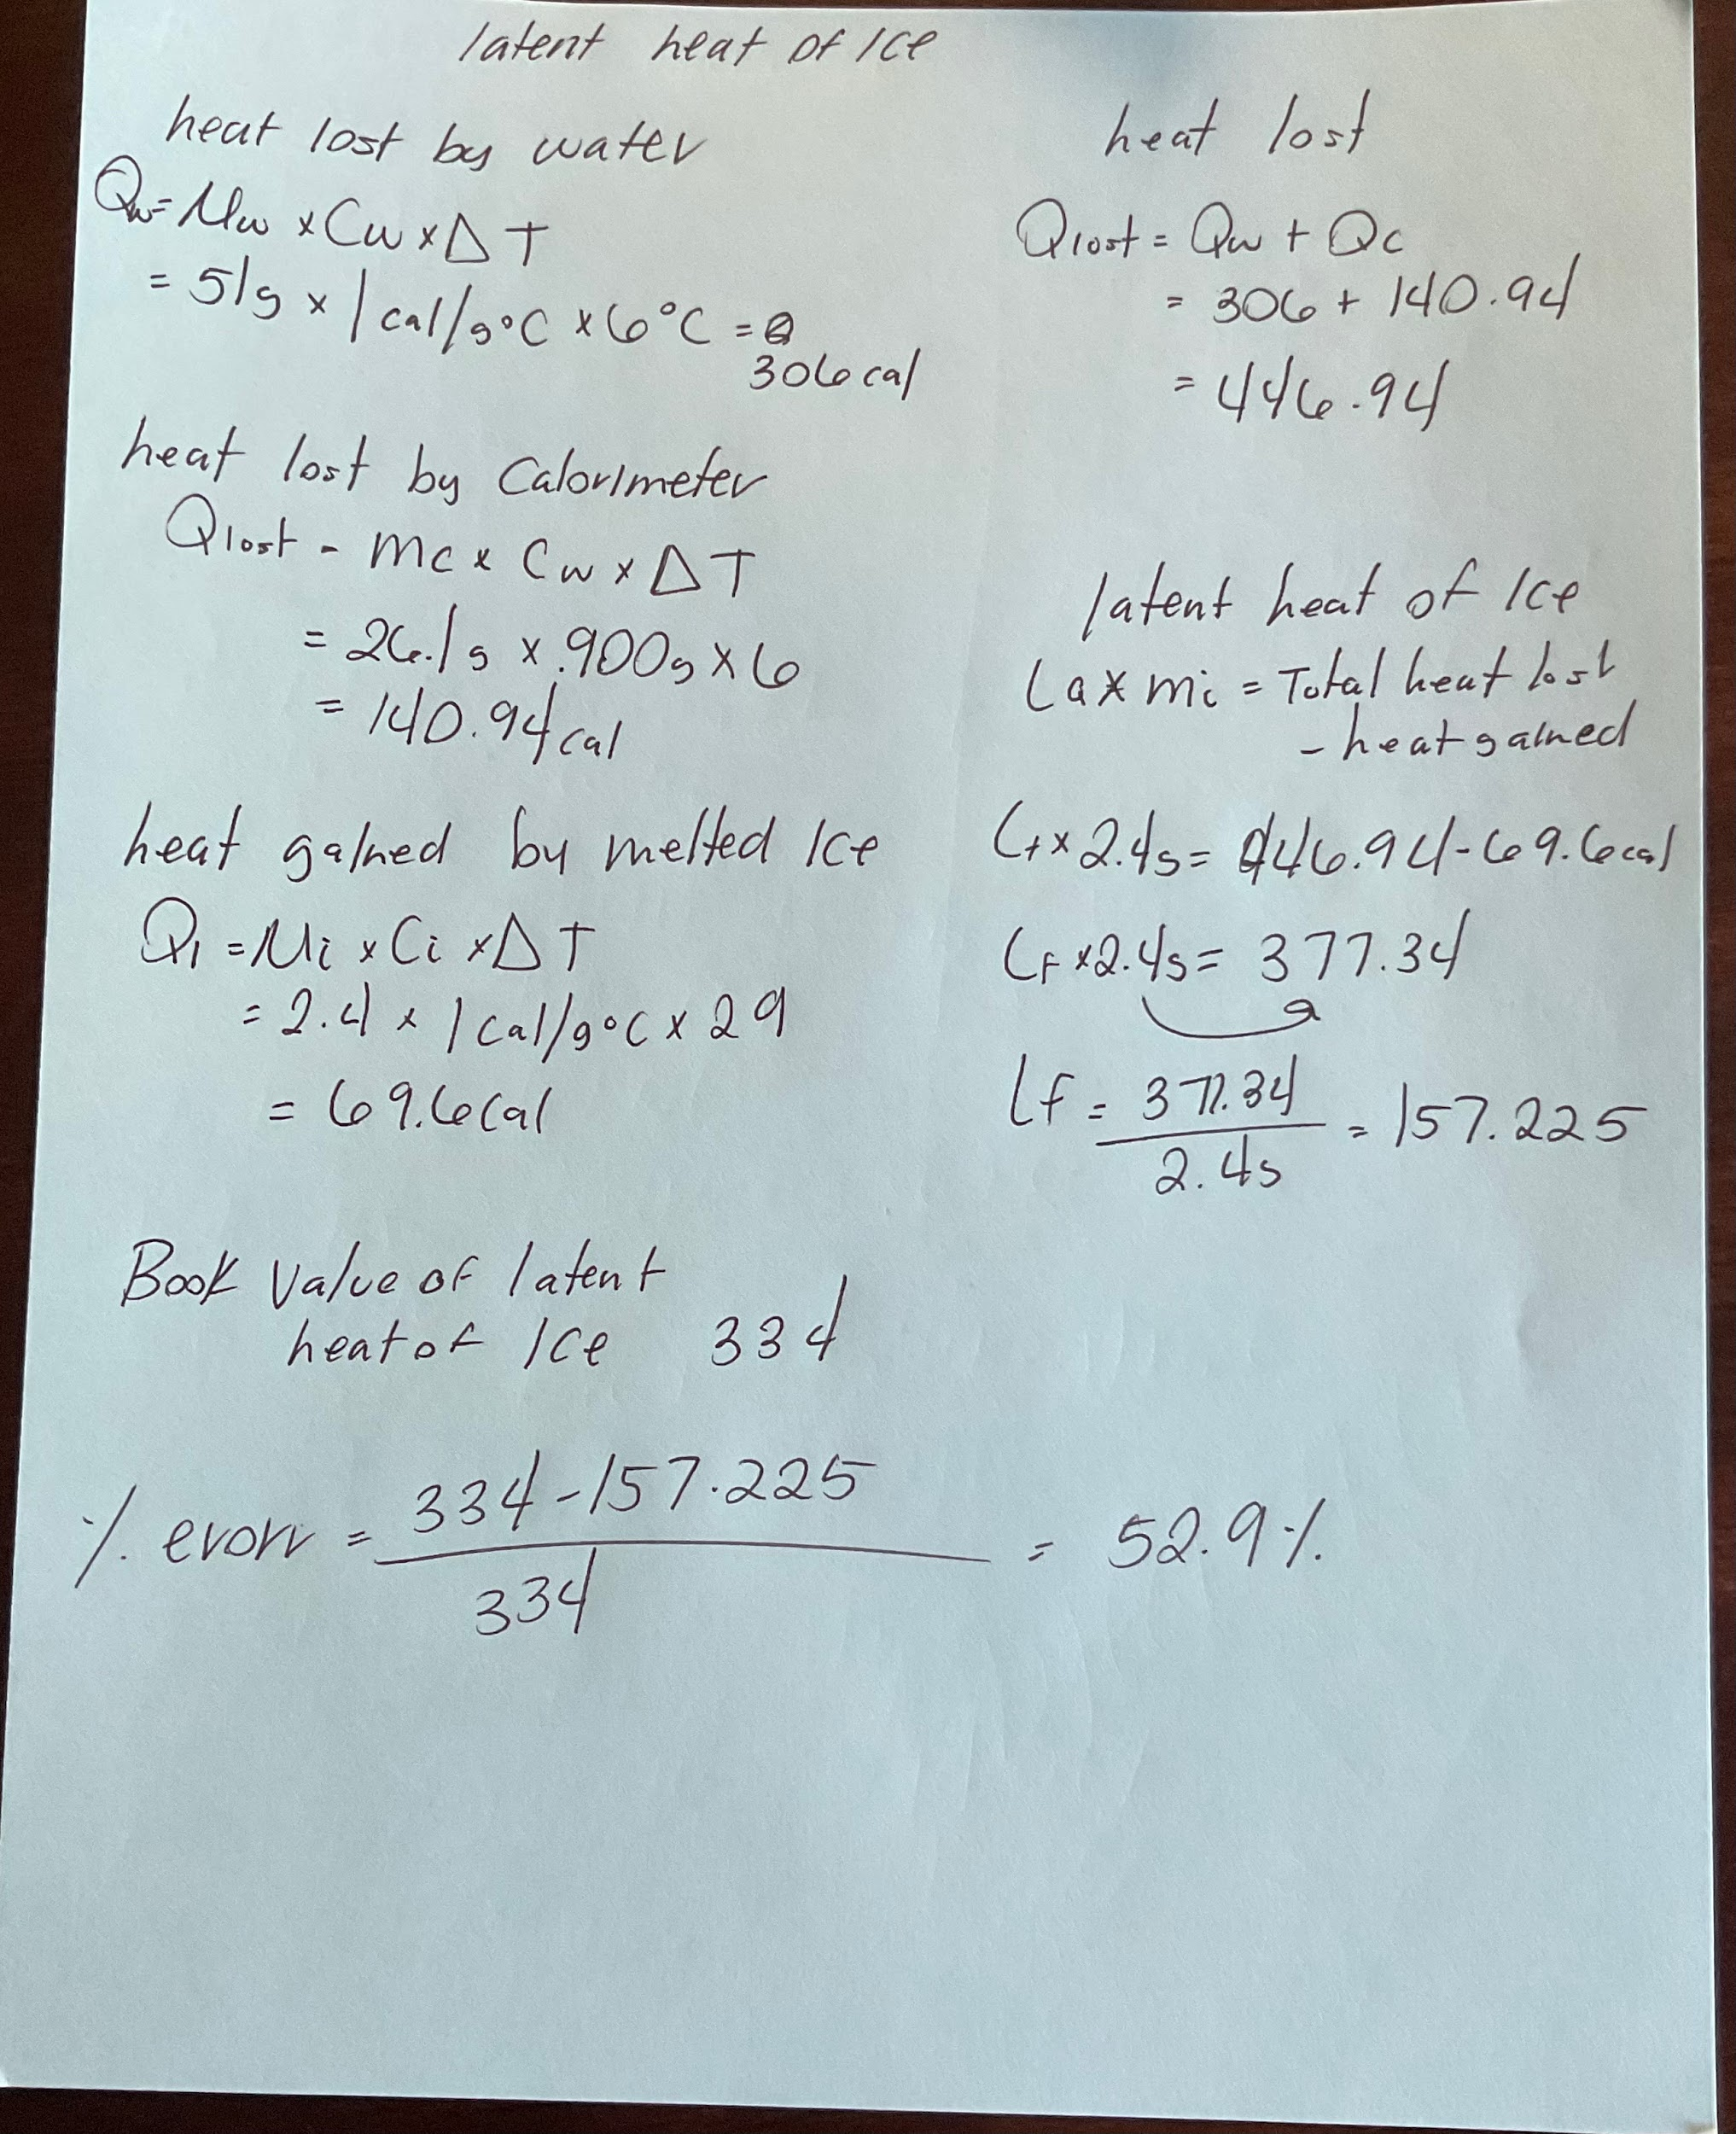 latent heat of Ice
heat lost by water
Qw= Mw x Cw x Δ T
= 51g x 1 cal/g°C x 6°C =
306cal
heat lost by Calorimeter
Qlost - mc x Cw x Δ T
= 26.1g x .900g x 6
= 140.94cal
heat gained by melted Ice
Q1 = Mi x Ci x Δ T
= 2.4 x 1 Cal/g°C x 29
= 69.6Cal
Book Value of latent
heat of Ice 334
heat lost
Qlost = Qw + Qc
= 306 + 140.94
= 446.94
latent heat of Ice
La x mi = Total heat lost
- heat gained
Lf x 2.4g = 446.94 - 69.6cal
LF x 2.4g = 377.34
Lf = 377.34 / 2.4g = 157.225
% erorr = 334 - 157.225 / 334 = 52.9%